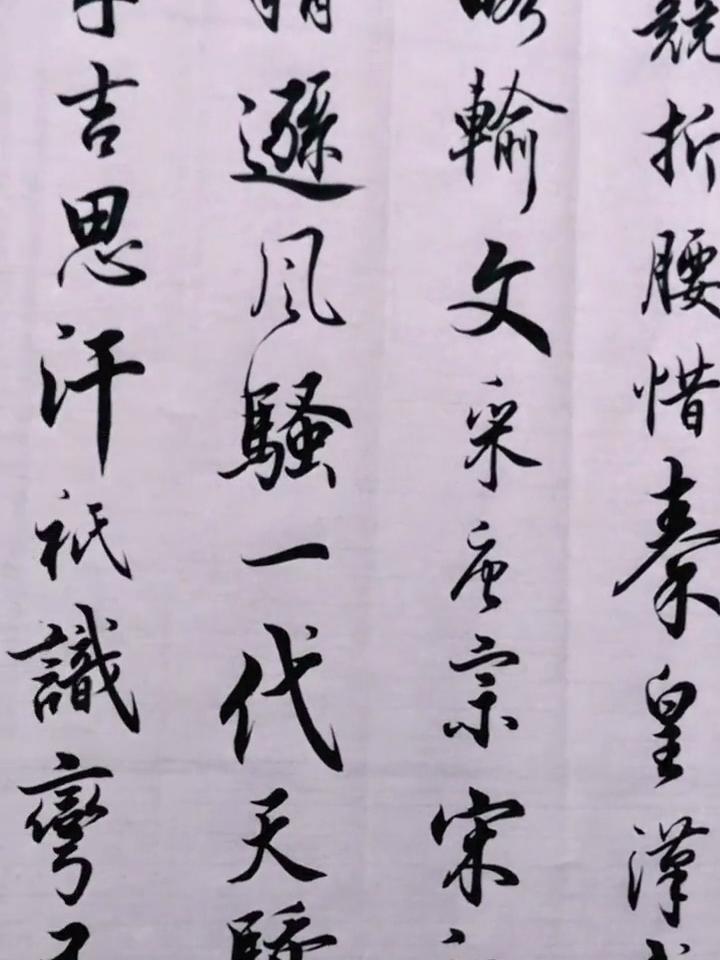 競折腰惜秦皇漢
略輸文采唐宗宋
稍遜風騷一代天驕
吉思汗祇識彎